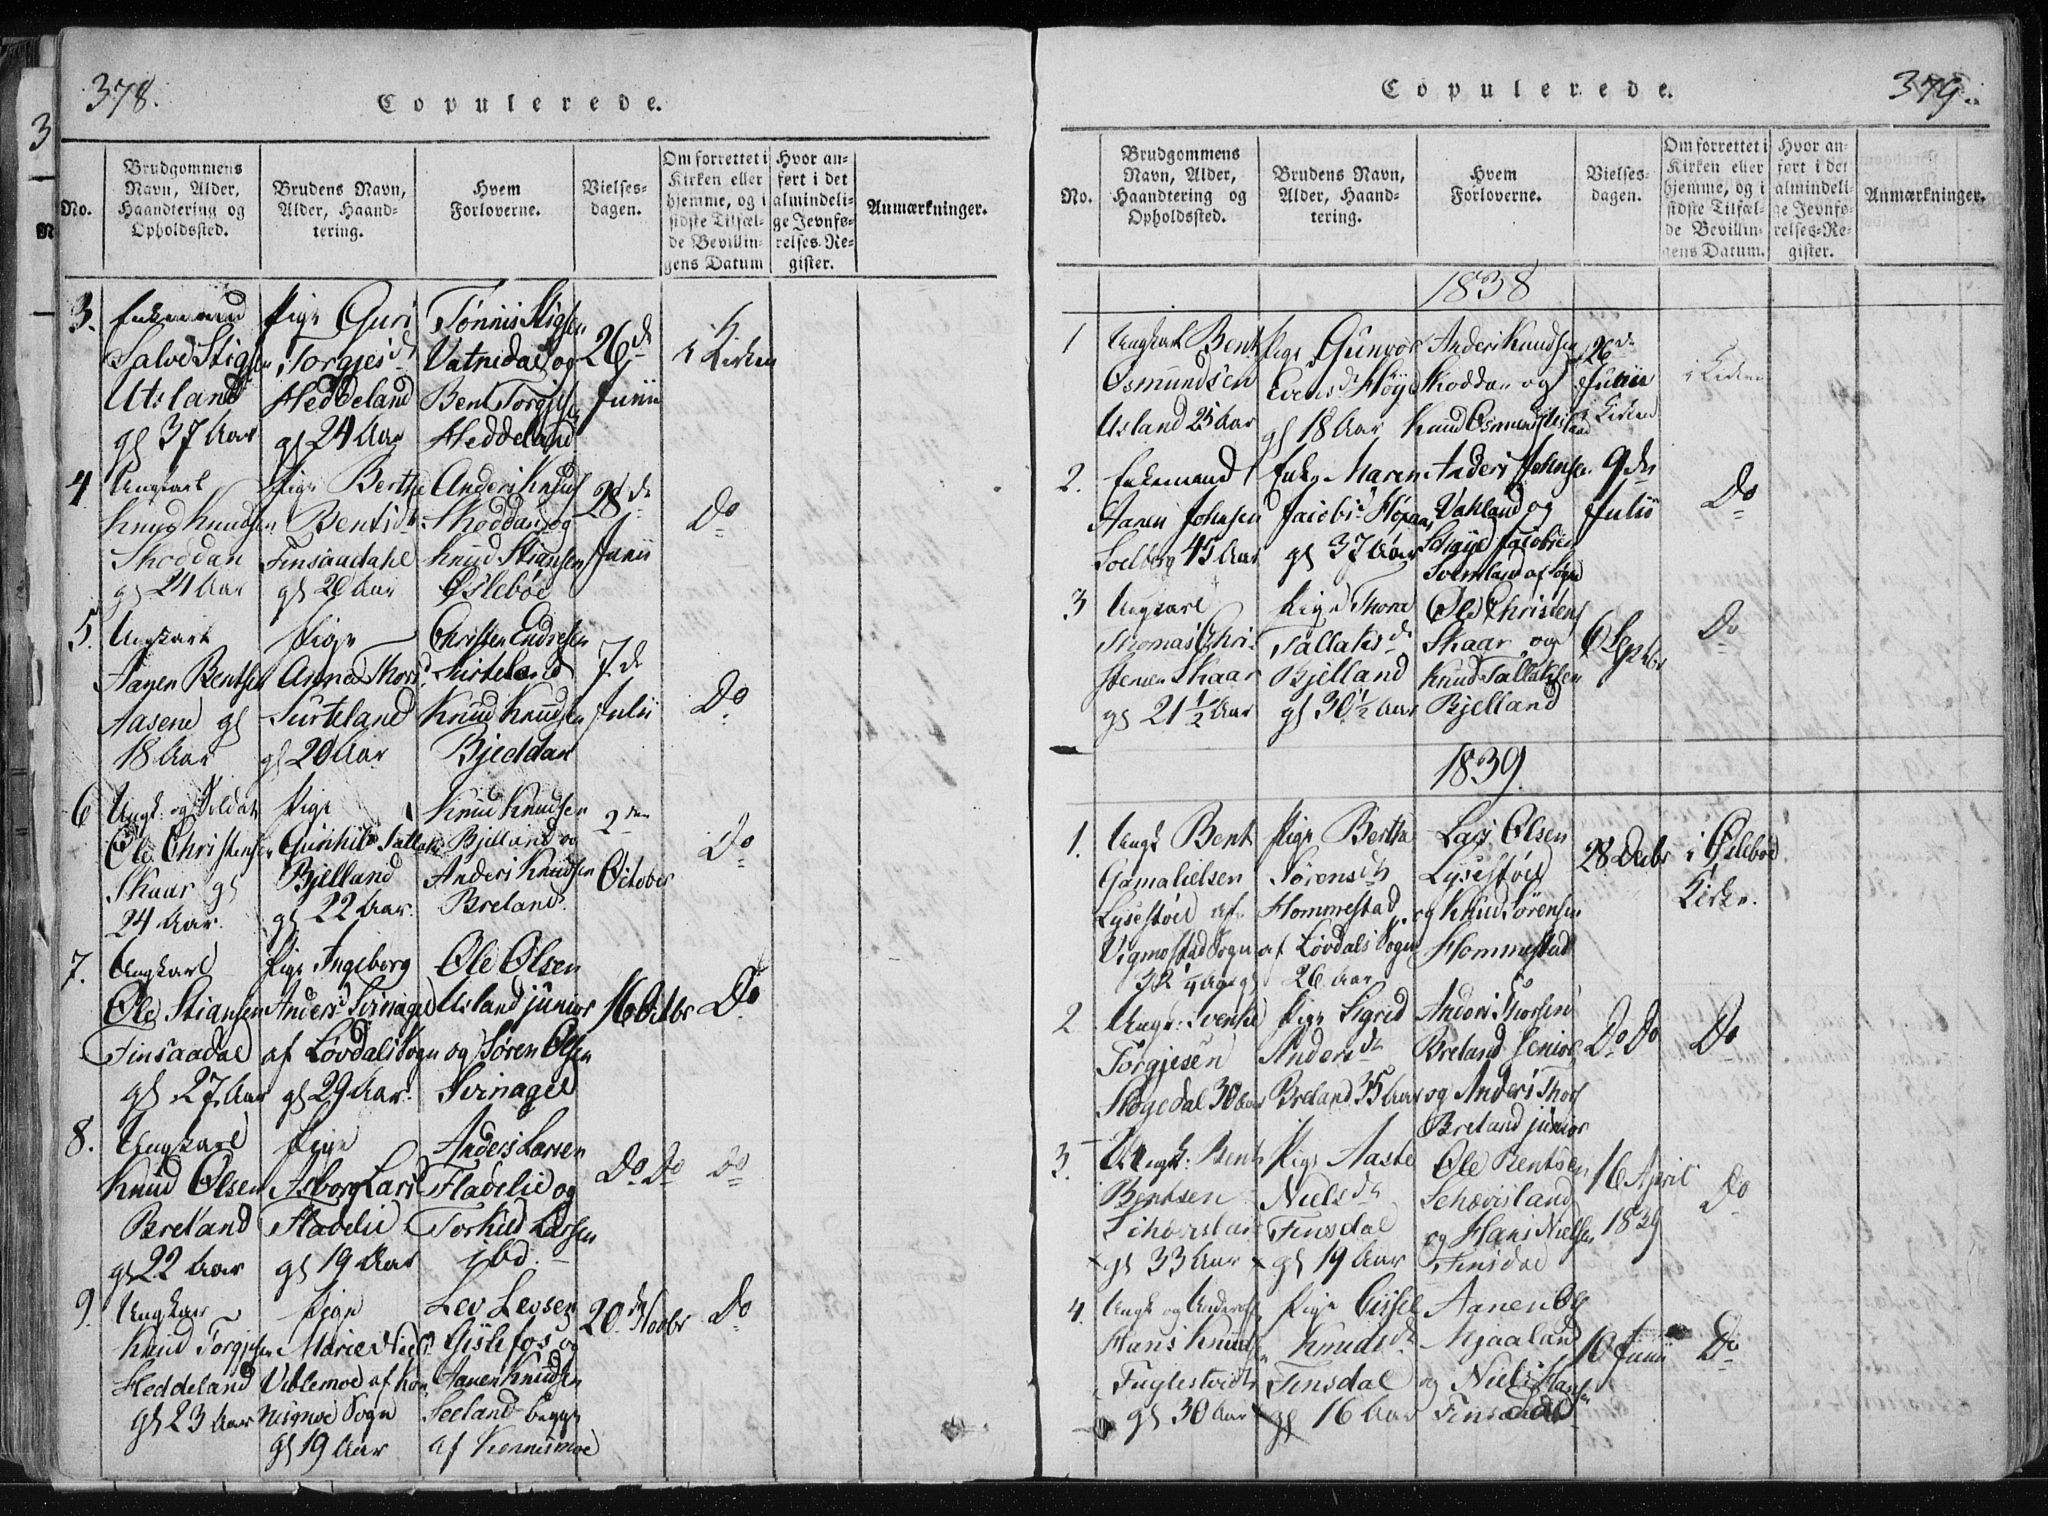 378.
Copulerede.
No.
Brudgommens
Navn, Alder,
Haandtering og
Opholdssted.
Brudens Navn,
Alder, Haand-
tering.
Hvem
Forloverne.
Vielses-
dagen.
Om forrettet i
Kirken eller
hjemme, og i
sidste Tilfæl-
de Bevillin-
gens Datum
Hvor an-
ført i det
almindeli-
ge Jevnfø-
relses-Re-
gister.
Anmærkninger.
3.
Enkemand
Salve Stigsen
Usland
gl 37 Aar
Pige Guri
Torgjesd.
Heddeland
gl 24 Aar
Tønnis Stigsen
Vatnedal og
Bent Torgjesen
Heddeland
26de
Junii
i Kirken
4
Ungkarl
Knud Knudsen
Skoddan
gl 24 Aar
Pige Bertha
Bentsd.
Finsaadahl
gl 20 Aar
Anders Knuds
Skoddan og
Knud Stiansen
Øslebøe
28de
Junii
Do
5.
Ungkarl
Aanen Bentsen
Aasene gl
18 Aar
Pige
Anna Thorsd.
Surteland
gl 20 Aar
Christen Endresen
Surteland
Knud Knudsen
Bjeddan
7de
Julii
Do
6
Ungk: og Soldat
Ole Christensen
Skaar gl
24 Aar.
Pige
Gunhild Tallaks
Bjelland
gl 22 Aar.
Knud Knudsen
Bjelland og
Anders Knudsen
Breland
2den
October
Do
7.
Ungkarl
Ole Stiansen
Finsaadal
gl 27 Aar
Pige Ingeborg
Andersd Svinagel
af Løvdals Sogn
gl 29 Aar.
Ole Olsen
Usland junior
og Søren Olsen
Svinagel
16 Octbr
Do
8.
Ungkarl
Knud Olsen
Breland
gl 22 Aar
Pige
Asborg Lars
Fladelie
gl 19 Aar
Anders Larsen
Fladelie og
Torkild Larsen
ibd.
Do Do
Do
9.
Ungkar
Knud Torgjesen
Heddeland
gl 23 Aar
Pige
Marie Niels
Viblemoe af Kon
nismoe Sogn
gl 19 Aar
Lev Levsen
Gislefos og
Aanen Knudsen
Seeland begge
af Konnismoe
20de Novbr
Do
379.
Copulerede.
No.
Brudgommens
Navn, Alder,
Haandtering og
Opholdssted.
Brudens Navn,
Alder, Haand-
tering.
Hvem
Forloverne.
Vielses-
dagen.
Om forrettet i
Kirken eller
hjemme, og i
sidste Tilfæl-
de Bevillin-
gens Datum.
Hvor an-
ført i det
almindeli-
ge Jevnfø-
relses-Re-
gister.
Anmærkninger.
1838
1
Ungkarl Bent
Osmundsen
Usland 25 Aar
Pige Gunvor
Evensd. Høye
gl 18 Aar
Anders Knudsen
Skoddan og
Knud Osmunds Usland
26de
Julii
i Kirken
i Kirken
2.
Enkemand
Aanen Johnsen
Soelberg 45 Aar
Enke Maren
Jacobsd.
gl 37 Aar
Anders Johnsen
Vahland og
Jacobsen
Svenland af Søgne
9den
Julii
Do
3
Ungkarl
Thomas Chri-
stensen Skaar
gl 21 1/2 Aar
Pige Thore
Tallaksd.
Bjelland
gl 30 1/2 Aar
Ole Christens
Skaar og
Knud Tallaksen
Bjelland
6 Septbr
Do
1839.
1.
Ungk Bent
Gamalielsen
Lysestøel af
Vigmostad Sogn
32 1/4 Aar gl
Pige Bertha
Sørensdtr
Hommestad
af Løvdals Sogn
26 Aar
Lars Olsen
Lysestøel
og Knud Sørensen
Hommestad
28 Decbr
i Øslebøe
Kirke.
2
Ungk: Svend
Torgjesen
Skogedal 30 Aar
Pige Sigrid
Andersdtr
Breland 35 Aar
Anders Thorsen
Breland senior
og Anders Thors
Breland junior
Do Do
Do
3.
Ungk: Bent
Bentsen
gl 33 Aar
Pige Aaste
Nielsdtr
Finsdal
gl 19 Aar
Ole Bentsen
og Hans Nielsen
Finsdal
16 April
1839
Do
4.
Ungk og
Hans Knudsen
Fuglestvedt
gl 30 Aar
Pige Gissel
Knudsdtr
Finsdal
gl 16 Aar
Aanen Ols
Mjaaland
og Niels Hansen
Finsdal
10 Junii
Do